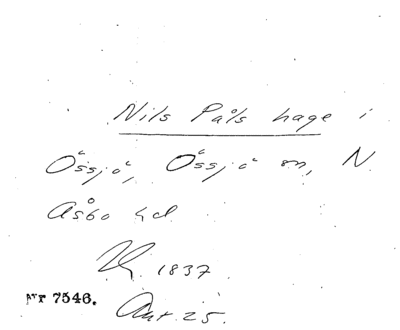 Nils Påls hage i
Össjö, Össjö sn, N.
Åsbo hd
1837
Nr 7546. Akt. 25.